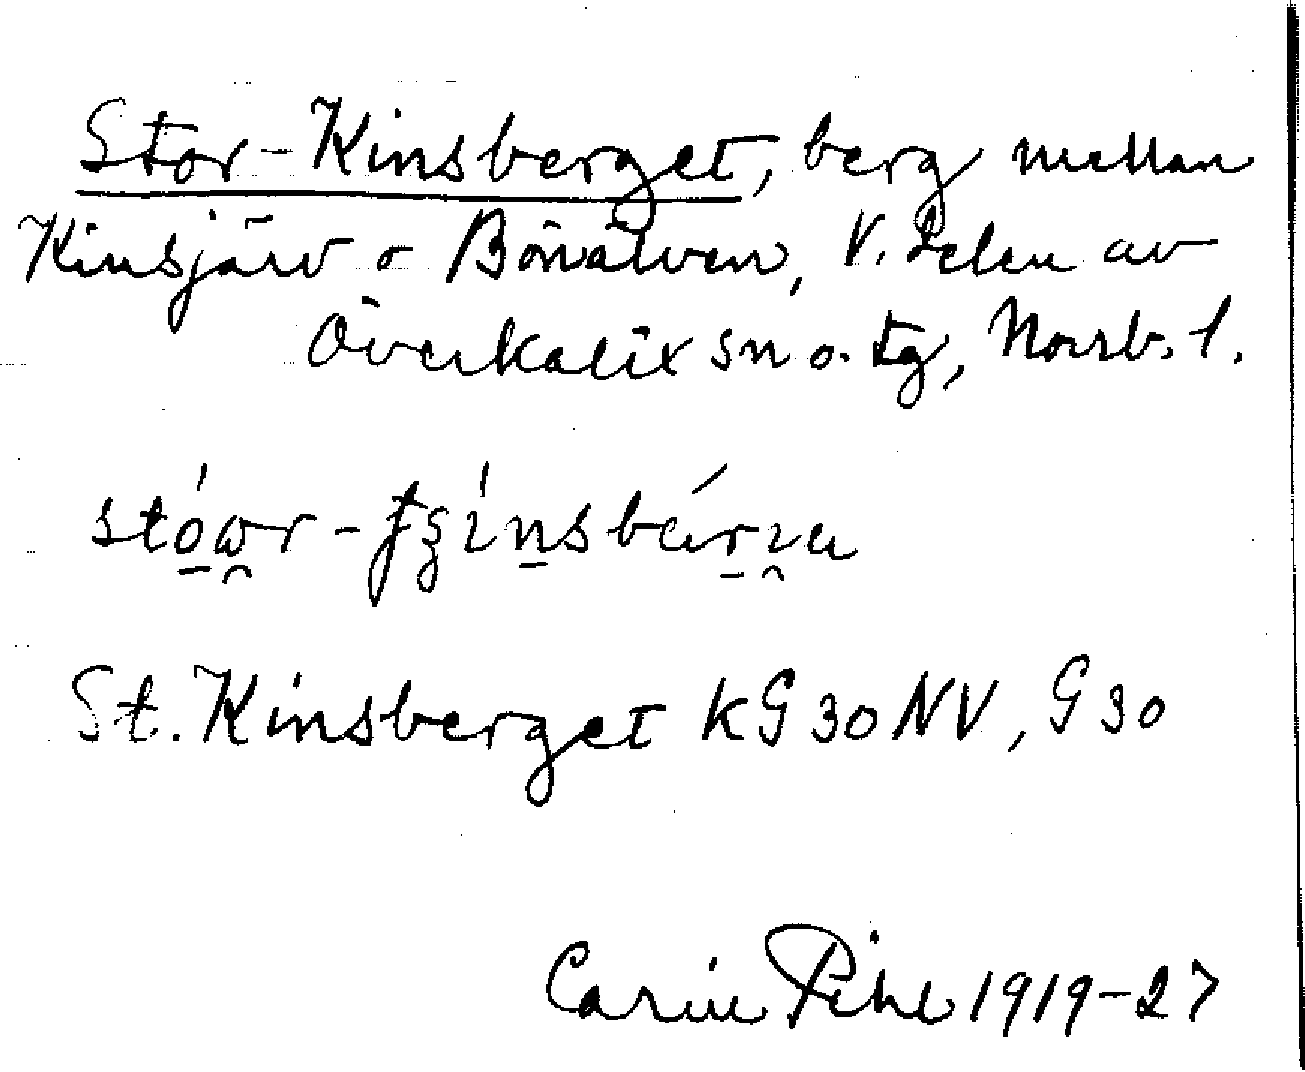 Stor-Kinsberget, berg mellan
Kinsjärv o Bönälven, V. delen av
Överkalix sn o. tg, Norrb. l.
stówr-ʈʂínsbárɪɑ
St. Kinsberget KG 30 NV, G 30
Carin Pihl 1919-27